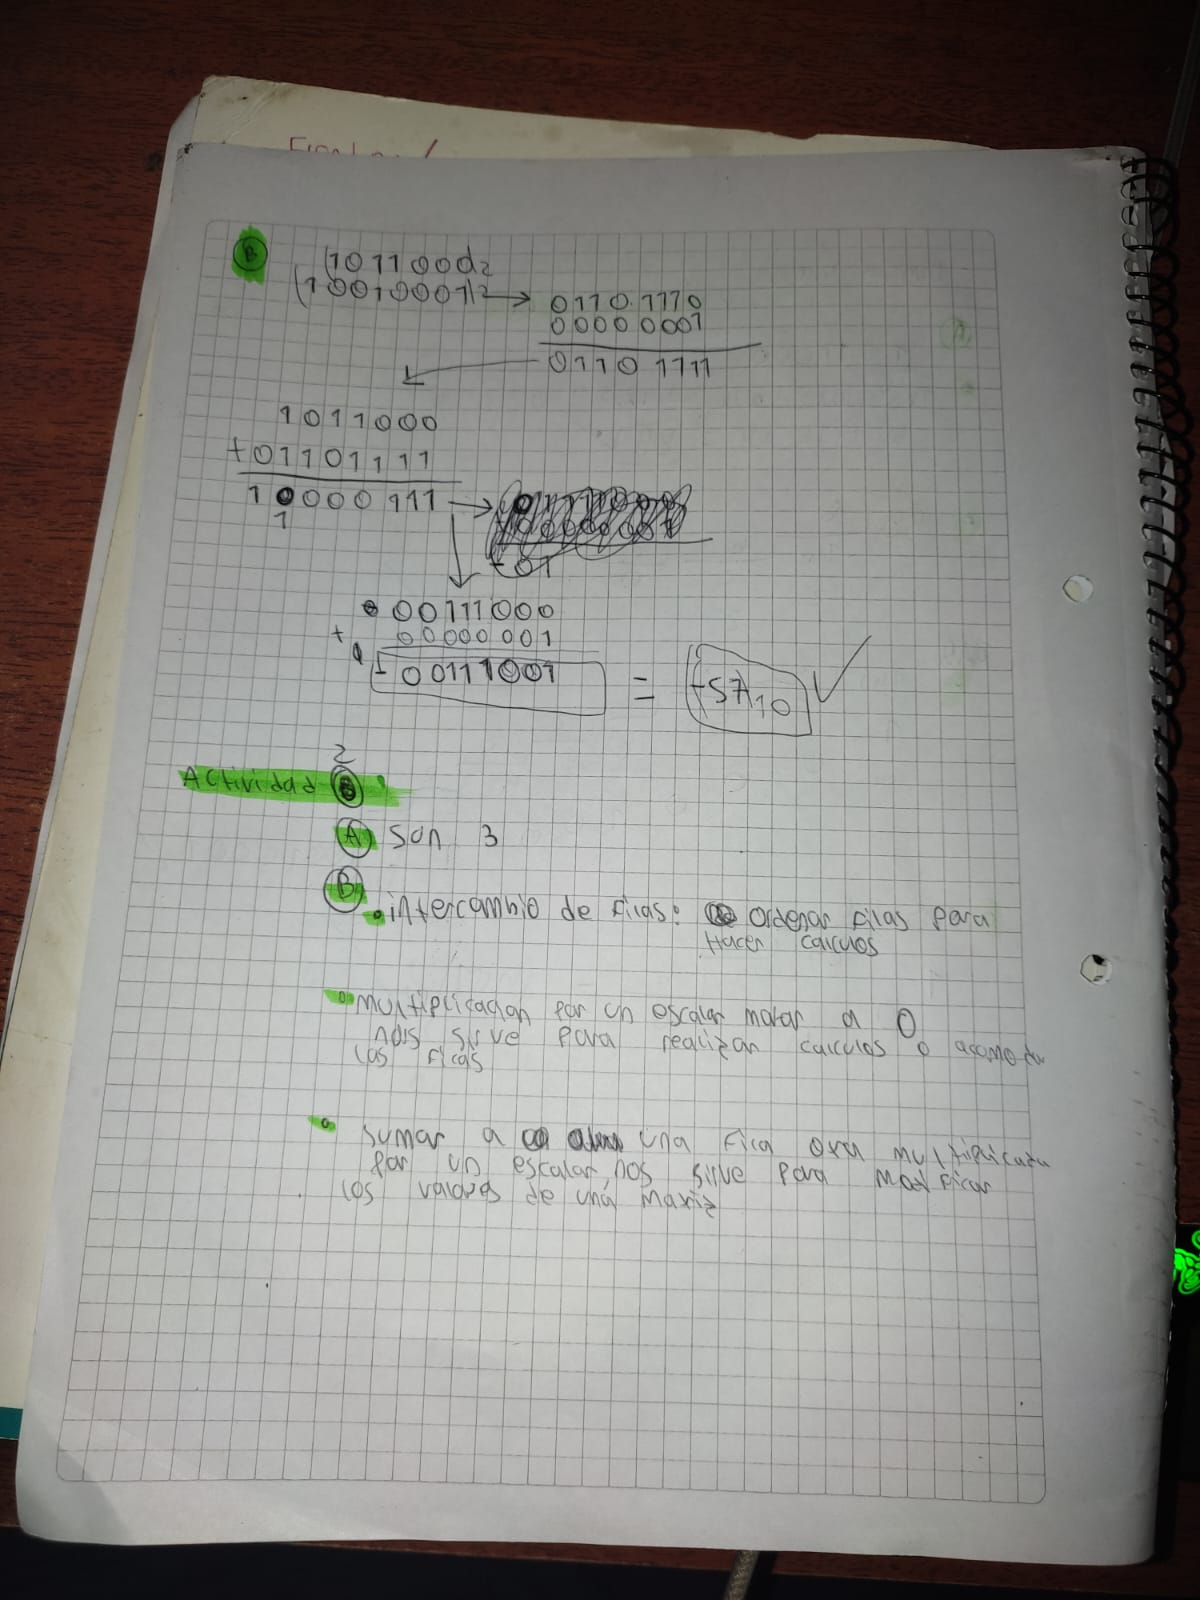 B
(1011000)2
(10010001)2 → 01101110
00000001
01101111
1011000
+01101111
10000111 →
1
01
00111000
+ 00000001
- 00111001 = (-57)10 ✓
2
Actividad
A) Son 3
B)
• intercambio de filas: Ordenar filas para
Hacer calculos
• multiplicacion por un escalar mayor a 0,
nos sirve para realizar calculos o acomodar
las filas
• Sumar a una fila otra multiplicada
por un escalar, nos sirve para modificar
los valores de una matriz